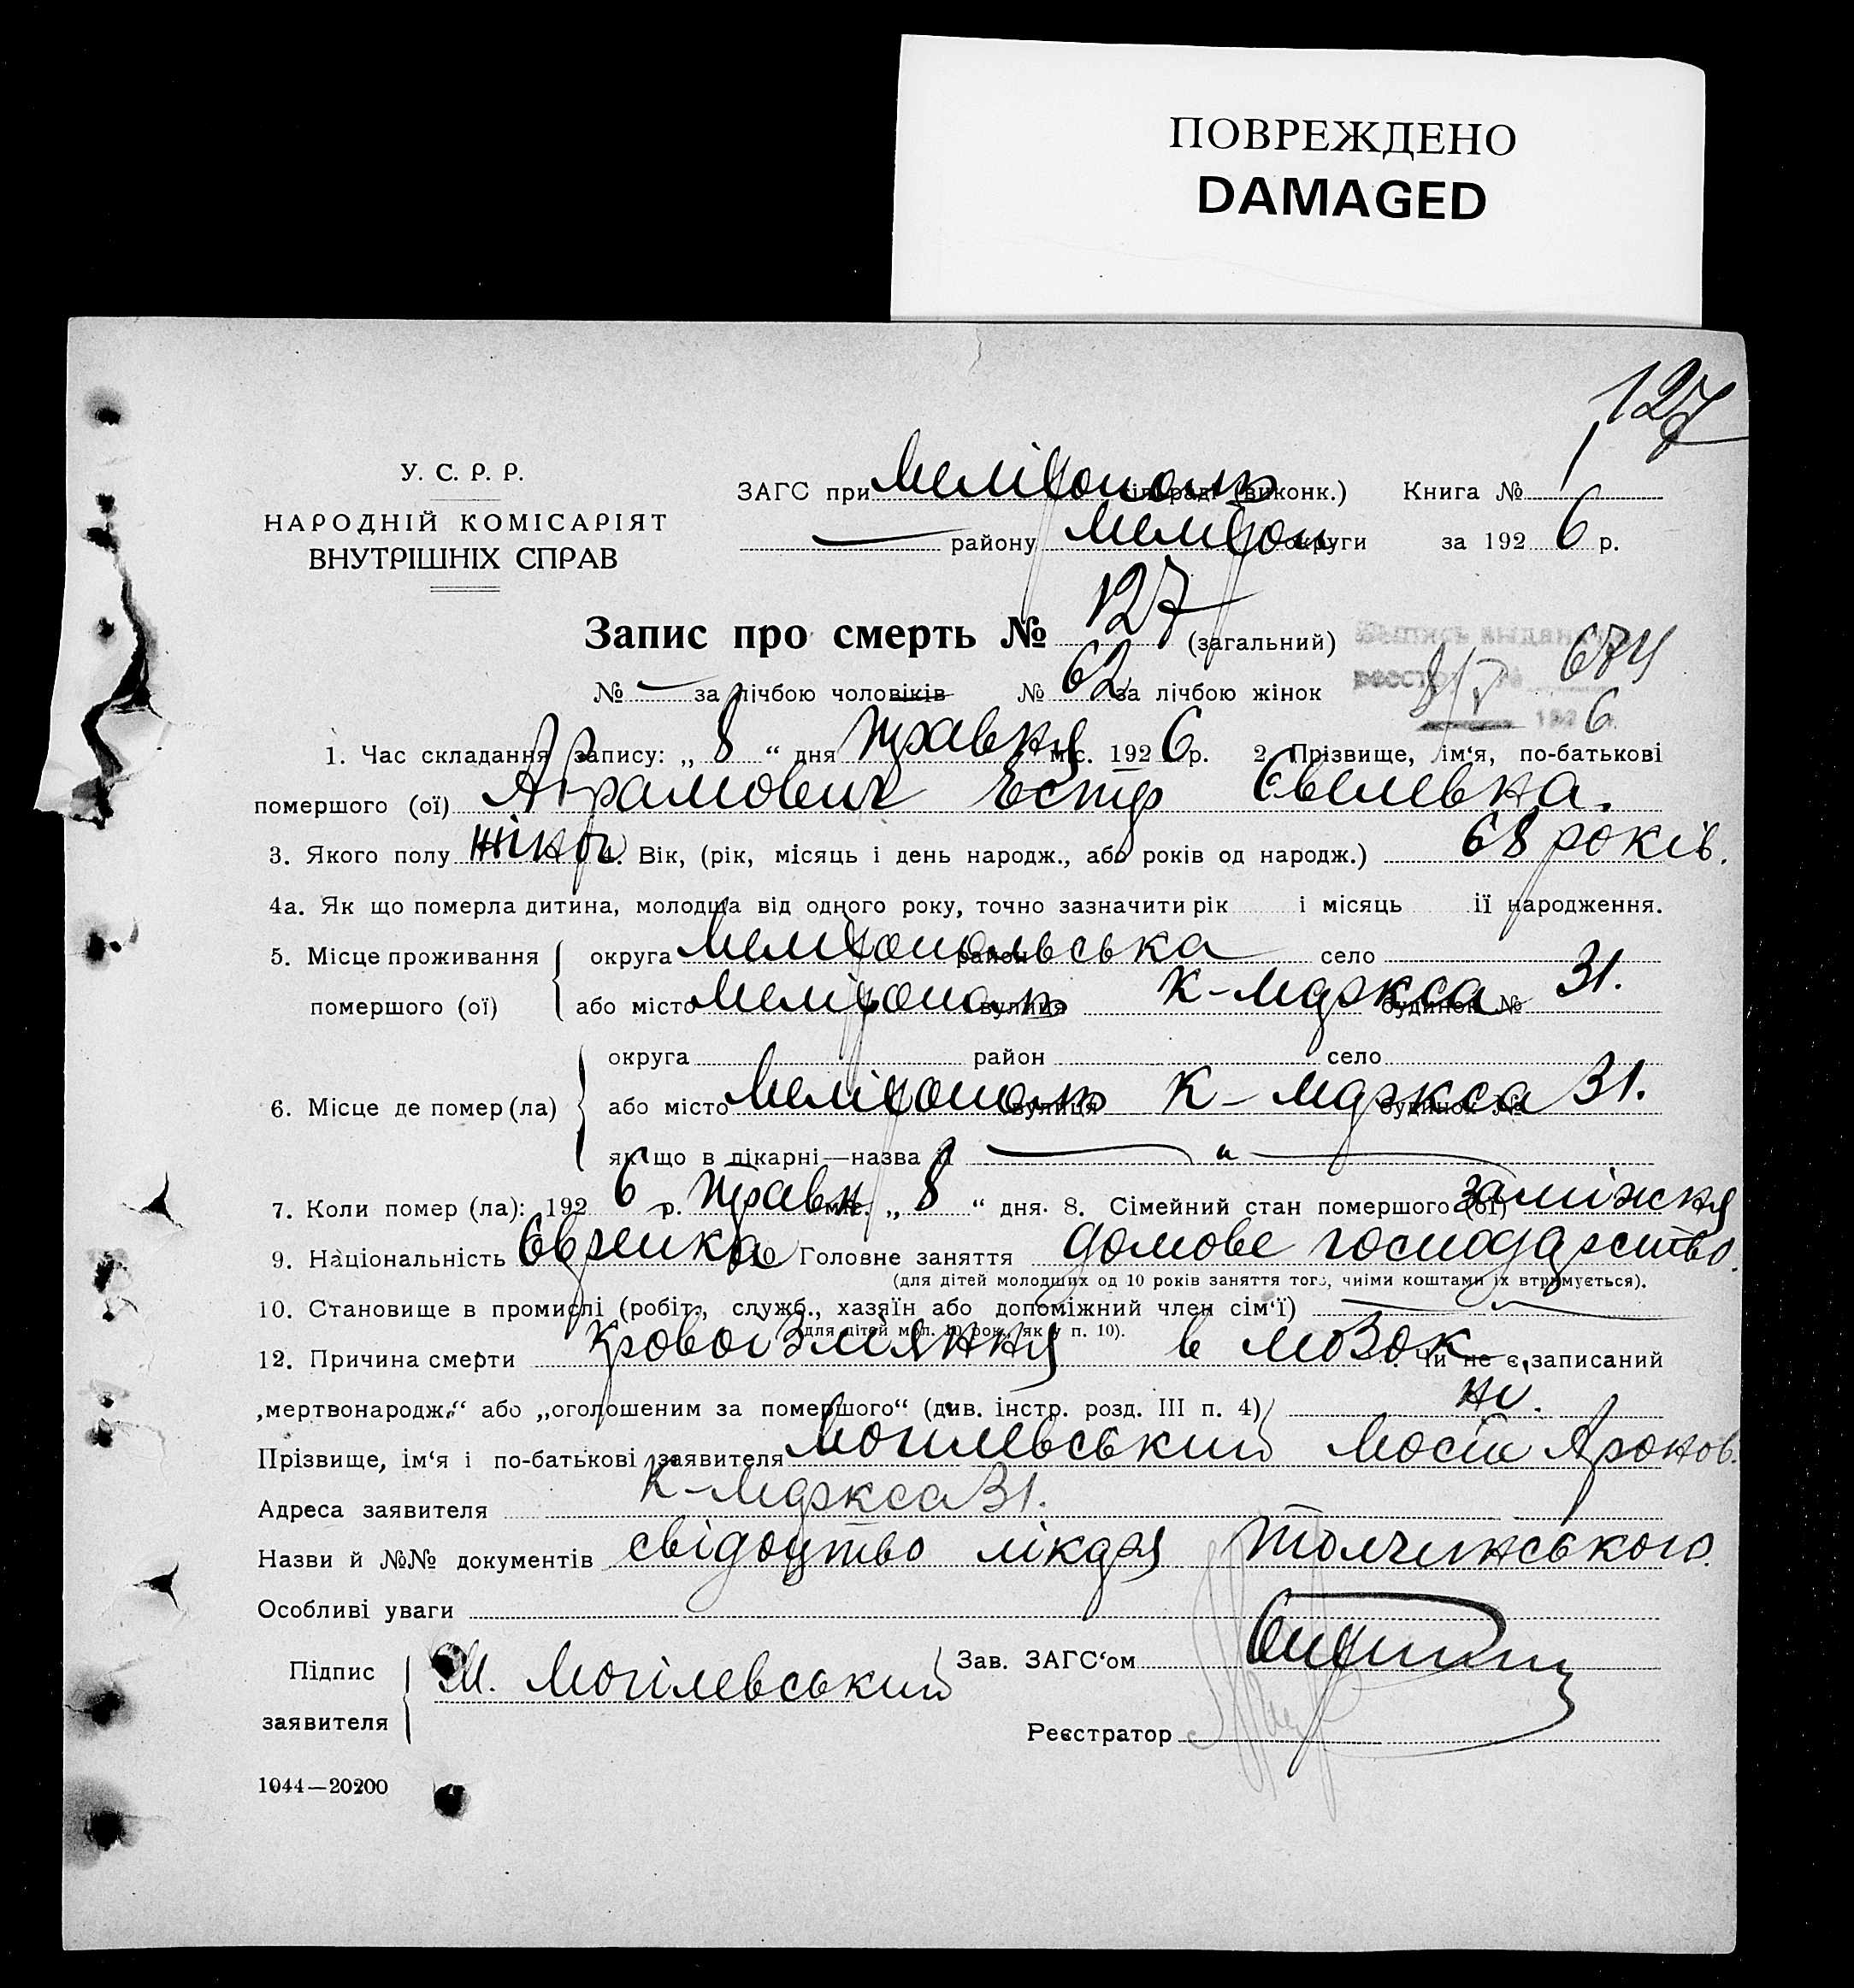 ПОВРЕЖДЕНО
DAMAGED
127
У. С. Р. Р.
НАРОДНІЙ КОМІСАРІЯТ
ВНУТРІШНІХ СПРАВ
ЗАГС при Мелітополь сільраді (виконк.) Книга № 1
— району Мелітоп округи за 1926 р.
Запис про смерть № 127 (загальний)
№ — за лічбою чоловіків № 62 за лічбою жінок
Выпись выдана
реестр № 674
8/V 1926
1. Час складання запису: „ 8 “ дня травня міс. 1926 р. 2. Прізвище, ім'я, по-батькові
помершого (ої) Абрамович Естр Євелевна.
3. Якого полу жіноч 4. Вік, (рік, місяць і день народж., або років од народж.) 68 років.
4а. Як що померла дитина, молодша від одного року, точно зазначити рік і місяць її народження.
5. Місце проживання помершого (ої) округа Мелітопольська район село
або місто Мелітополь вулиця К-Маркса будинок № 31.
6. Місце де помер (ла) округа район село
або місто Мелітополь вулиця К-Маркса будинок № 31.
як що в лікарні—назва її — „ —
7. Коли помер (ла): 1926 р. травн міс. „ 8 “ дня. 8. Сімейний стан помершого (ої) заміжня
9. Національність Єврейка 10 Головне заняття домове господарство.
(для дітей молодших од 10 років заняття того, чиїми коштами їх втримується).
10. Становище в промислі (робітн., служб., хазяїн або допоміжний член сім'ї) —
(для дітей мол. 10 рок., як у п. 10).
12. Причина смерти кровоізліяння в мозок. Чи не є записаний
„мертвонародж.“ або „оголошеним за помершого“ (див. інстр. розд. III п. 4) ні.
Прізвище, ім'я і по-батькові заявителя Могилевський Мосій Аронов.
Адреса заявителя К-Маркса 31.
Назви й №№ документів свідоцтво лікаря Толчинського.
Особливі уваги
Підпис заявителя М. Могілевський Зав. ЗАГС'ом
Реєстратор
1044—20200